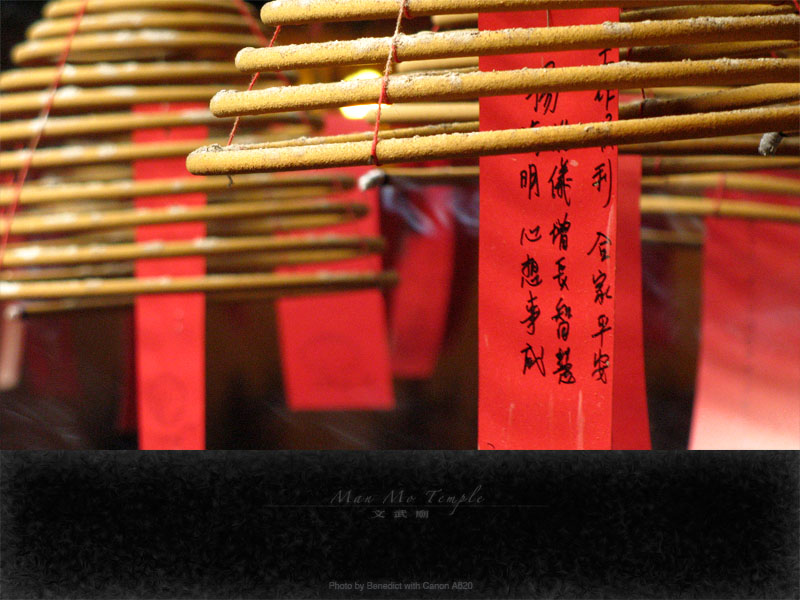 工作順利 合家平安
儀 增長智慧
楊 明 心想事成
Man Mo Temple
文武廟
Photo by Benedict with Canon A620